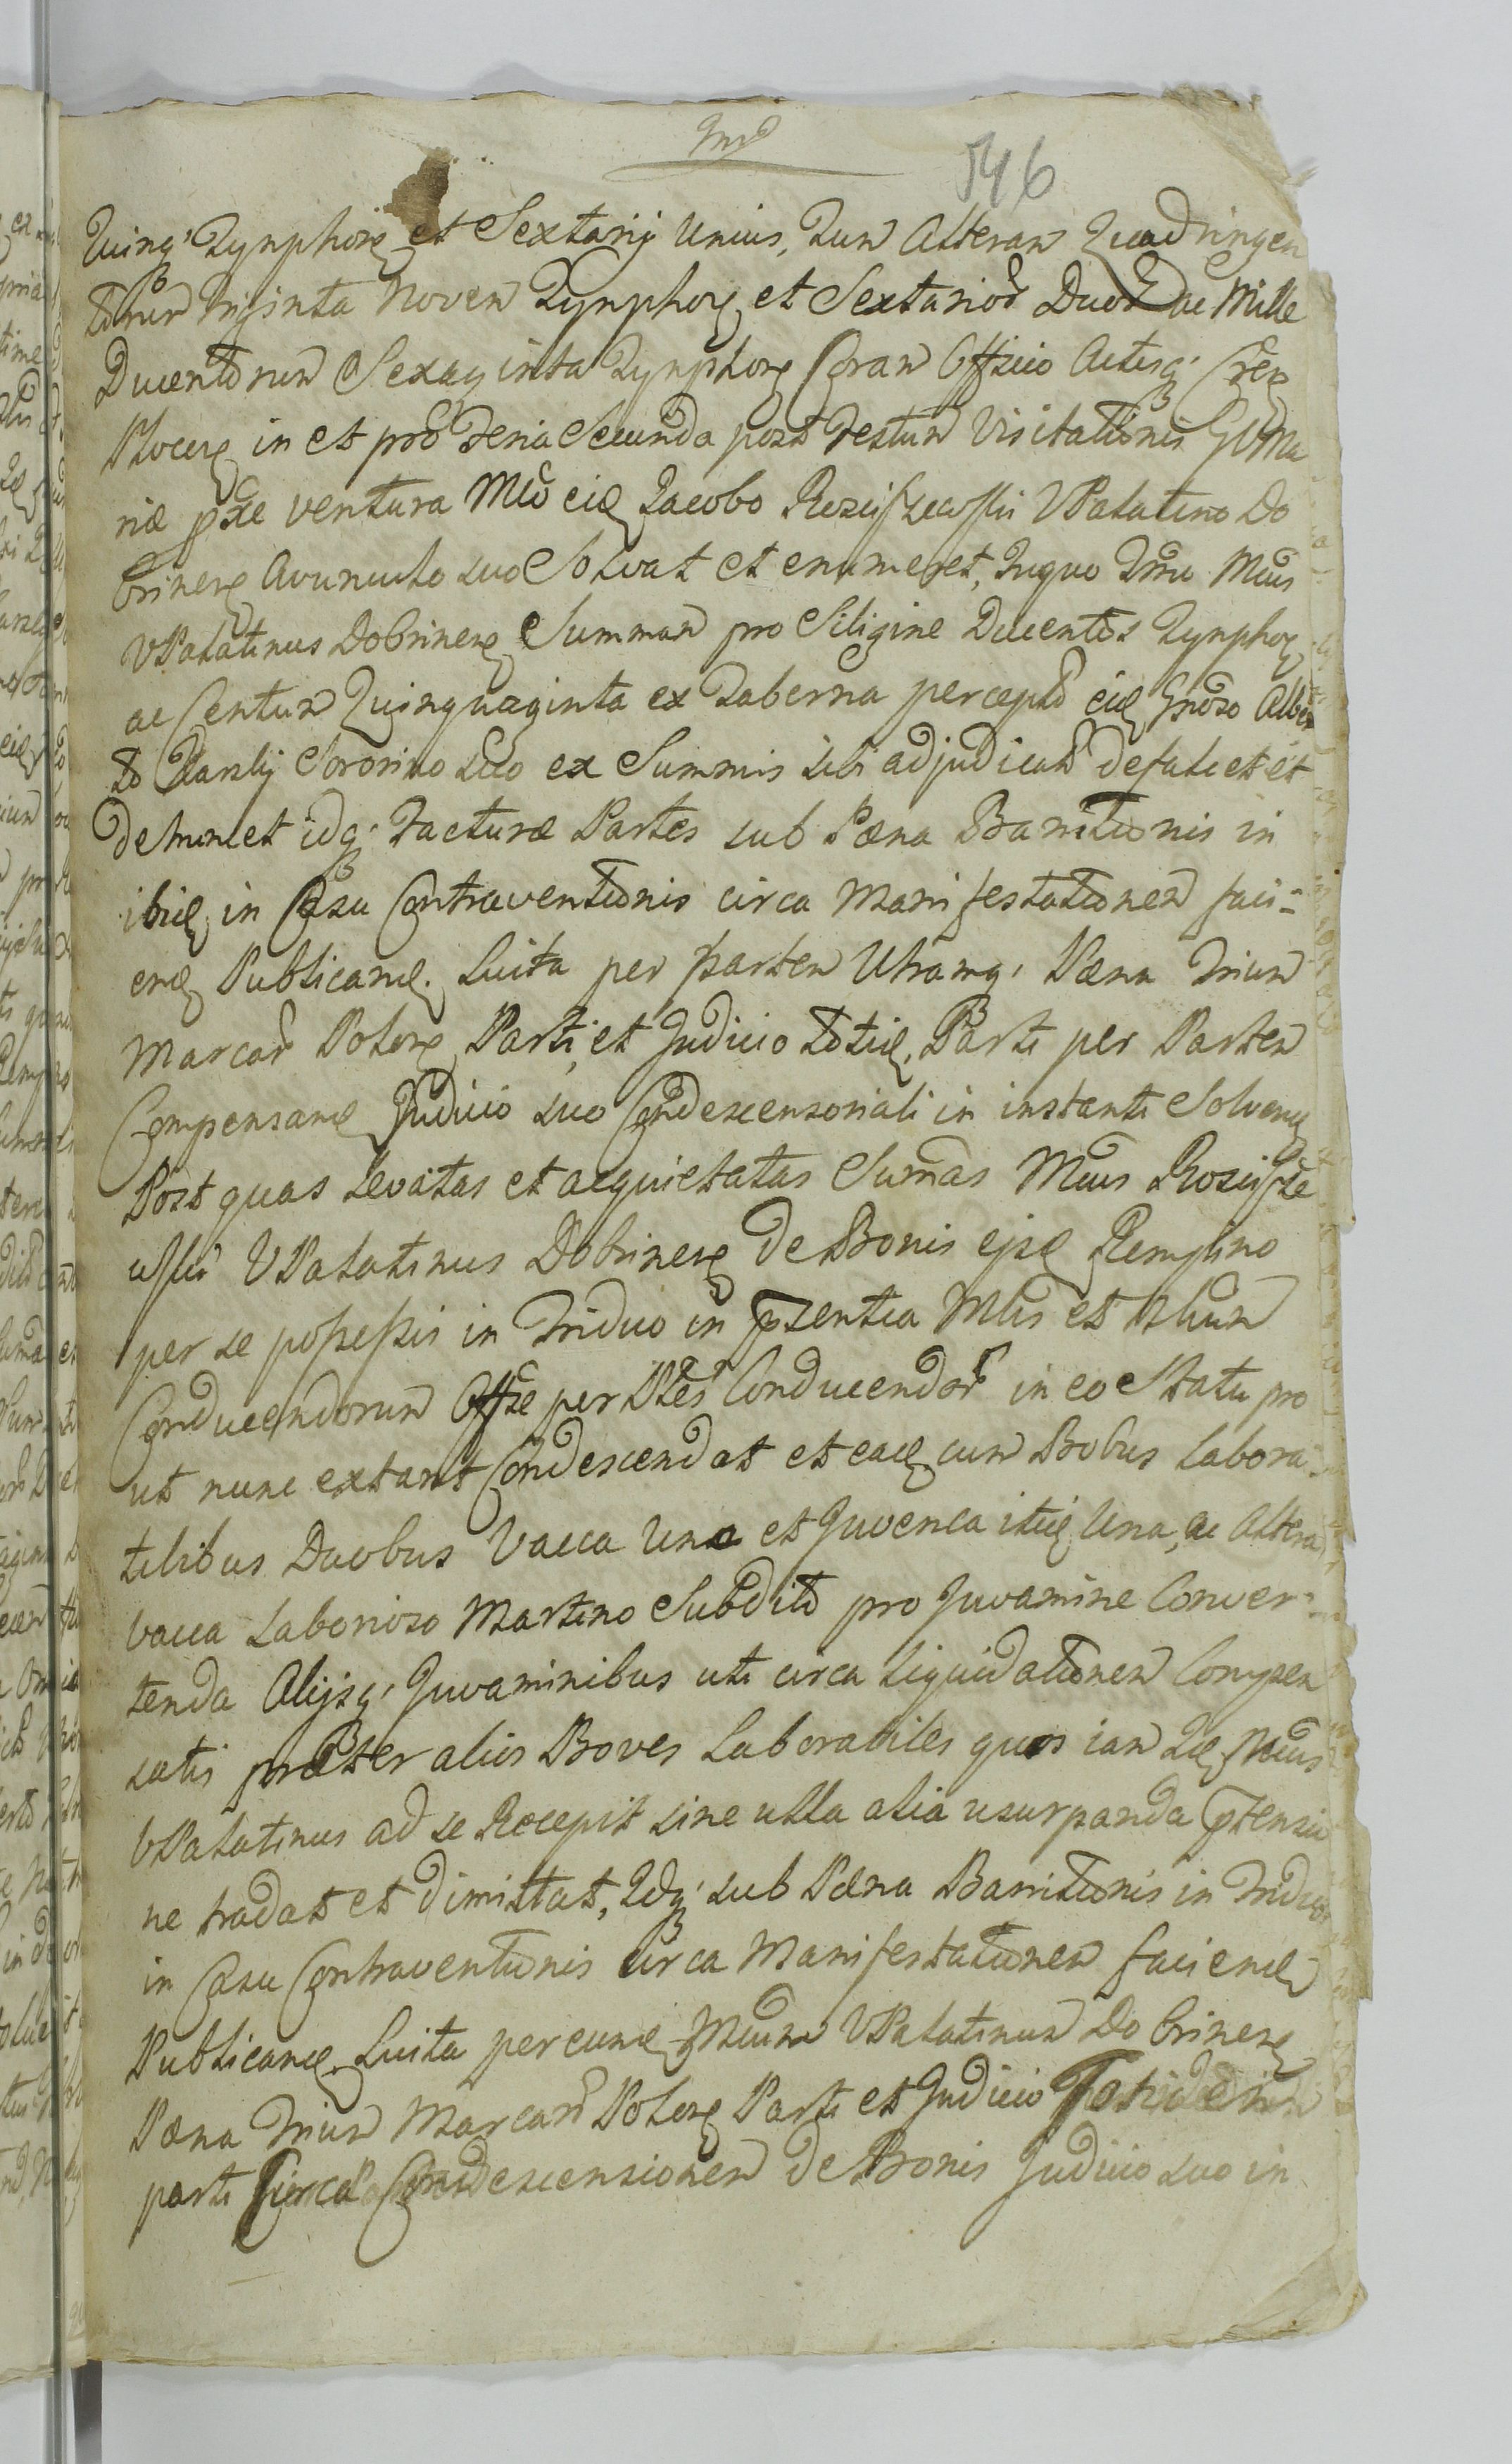 Ind
546
Quinq' Tynphorz et Sextarij Unius, Tum Alteram Quadringen
torum triginta Novem Tynphorz et Sextarior Duor ac Mille
Ducentorum Sexaginta Tynphorz Coram Officio Actisq' Cren
Plocenz in et pro Feria Secunda post Festum Visitationis GVMa
riæ pxe ventura Mco eidz Jacobo Rosciszewski VPalatino Do
brinenz Avunculo suo Solvat et enumeret, In quo Trm Mcus
VPalatinus Dobrinenz Summam pro Siligine Ducentos Tynphorz
ac Centum Quinquaginta ex Taberna percepto eidz Gnoso Alber
to Karski Sororino suo ex Summis sibi adjudicat defalcet et
detruncet idq' Facturæ Partes sub Pæna Bannitionis in
ibidz in Casu Contraventionis circa Manifestationem faci-
endz Publicandz. Luita per partem Utramq' Pæna trium
Marcar Polonz Parti, et Judicio Totidz, Parti per Partem
Compensandz Judicio suo Condescensoriali in instanti Solvendz
Post quas Levatas et acquietatas Sumas Mcus Rosciszew
wski VPalatinus Dobrinenz de Bonis ejsdz Remplino
per se possessis in Triduo in pzentia Mtri et Nbium
Conducendorum Offze per Ptes Conducendor in eo Statu pro
ut nunc extant Condescendat et eadz cum Bobus Labora-
tilibus Duobus Vacca Una et Juvenca itidz Una, ac Altera
vacca Laborioso Martino Subdito pro Juvamine Conver-
tenda Alijsq' Juvaminibus uti circa Liquidationem Compen
satis præter alios Boves Laborabiles quos iam Idz Mcus
VPalatinus ad se Recepit sine ulla alia usurpanda ptensio
ne tradat et dimittat, Idq' sub Pæna Bannitionis in Triduo
in Casu Contraventionis circa Manifestationem faciendz
Publicandz. Luita per eundz Mcum VPalatinum Dobrinenz
Pæna trium Marcar Polonz Parti et Judicio Totidem
parti Circa Condescensionem de Bonis Judicio suo in